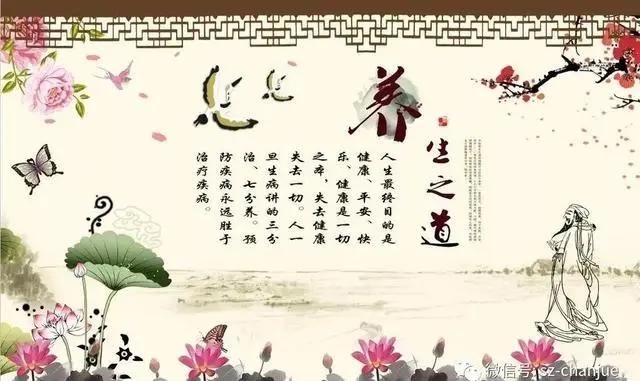 养生之道
人生最终目的是
健康、平安、快
乐、健康是一切
之本，失去健康
失去一切。人一
旦生病讲的三分
治、七分养。预
防疾病永远胜于
治疗疾病。
微信号: sz-chanjue